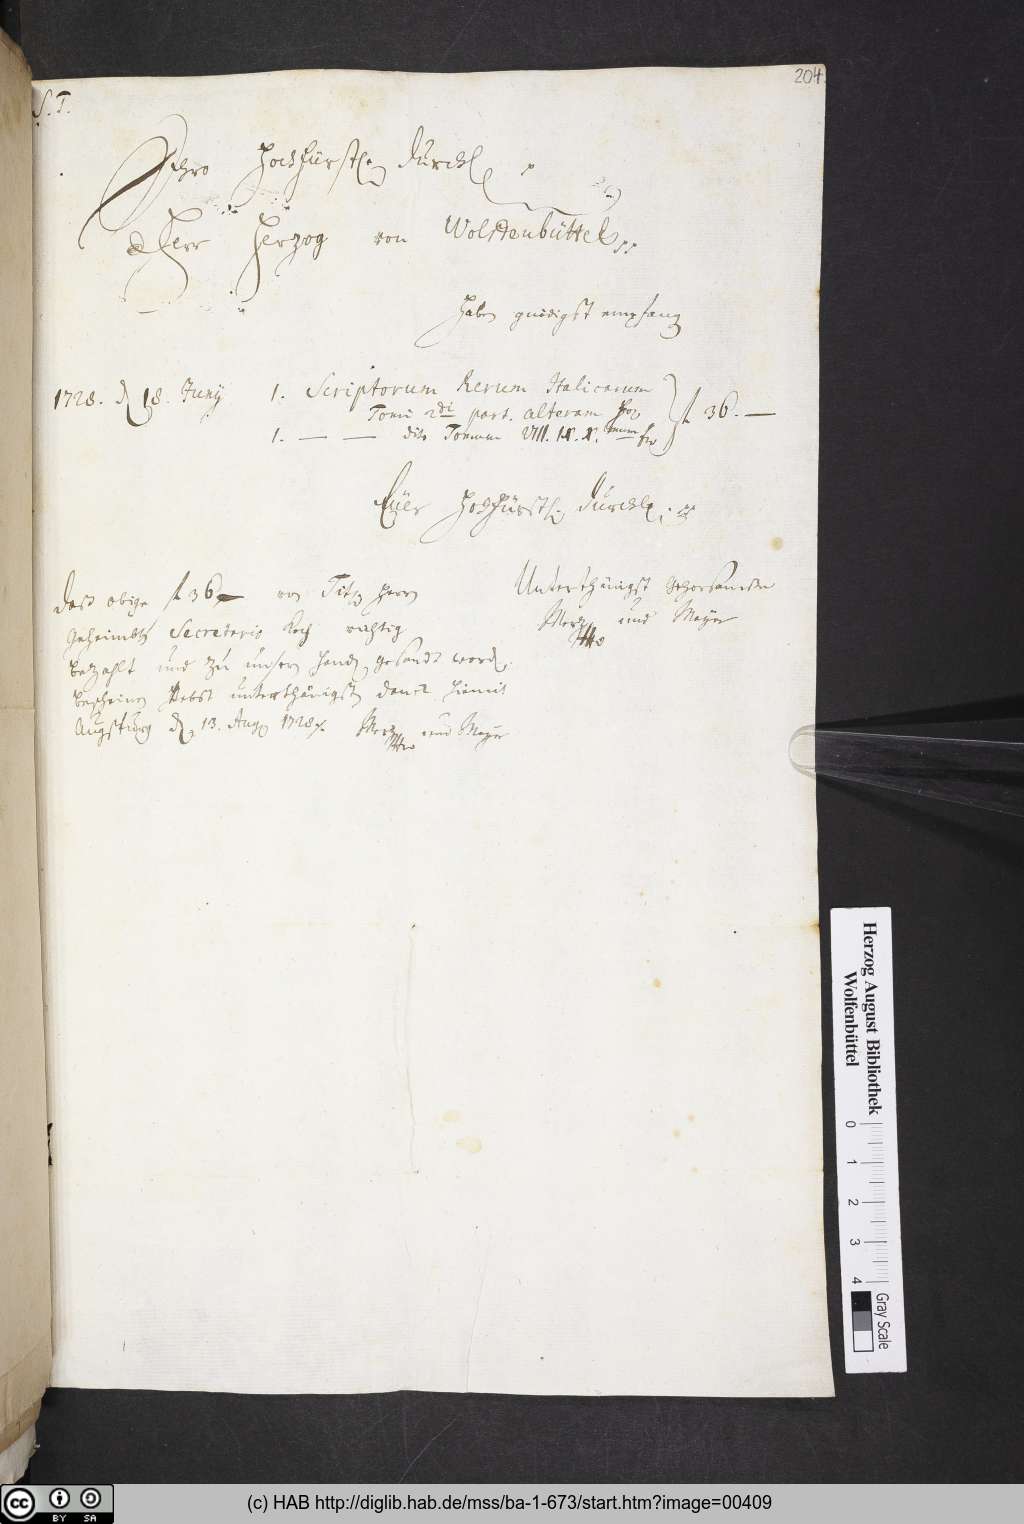 204
S. T.
Ihro Hochfürstl. Durchl.
Herr Herzog von Wolffenbüttel
Haben gnädigst empfang
1728. d 18. Juny 1. Scriptorum Rerum Italicarum
Tomi 2di part. alteram
1. — — dito Tomum VIII. IX. X. fl 36. —
Euer Hochfürstl. Durchl.
Unterthänigst gehorsamste
Merz und Mayer
Dass obige fl 36 von Tit. Herrn
Geheimbt Secretario Koch richtig
bezahlt und zu unsern Handen gesandt word.
bescheinen Nebst unterthänigst danck hiemit
Augspurg d. 13. Aug. 1728. Merz und Mayer
Herzog August Bibliothek
Wolfenbüttel
0 1 2 3 4
Gray Scale
cc BY SA
(c) HAB http://diglib.hab.de/mss/ba-1-673/start.htm?image=00409